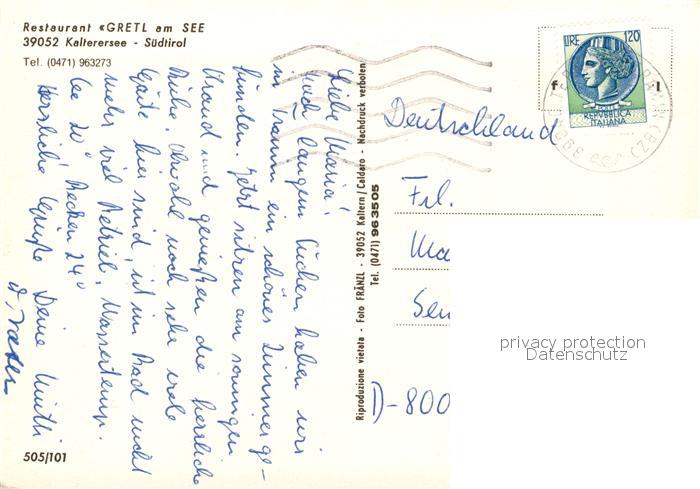 Restaurant «GRETL am SEE
39052 Kalterersee - Südtirol
Tel. (0471) 963273
Liebe Maria!
Nach langem Suchen haben wir
in Tramin ein schönes Zimmer ge-
funden. Jetzt sitzen am sonnigen
Strand und genießen die herrliche
Ruhe. Obwohl noch sehr viele
Gäste hier sind, ist im Bad nicht
mehr viel Betrieb. Wassertemp.
See 20° Becken 24°
Herzliche Grüße Deine Mutti
u. Vater
505/101
Riproduzione vietata - Foto FRÄNZL - 39052 Kaltern/Caldaro - Nachdruck verboten
Tel. (0471) 963505
LIRE 120
REPVBBLICA
ITALIANA
(BZ)
Deutschland
Frl.
Ma
Sen
D-800
privacy protection
Datenschutz